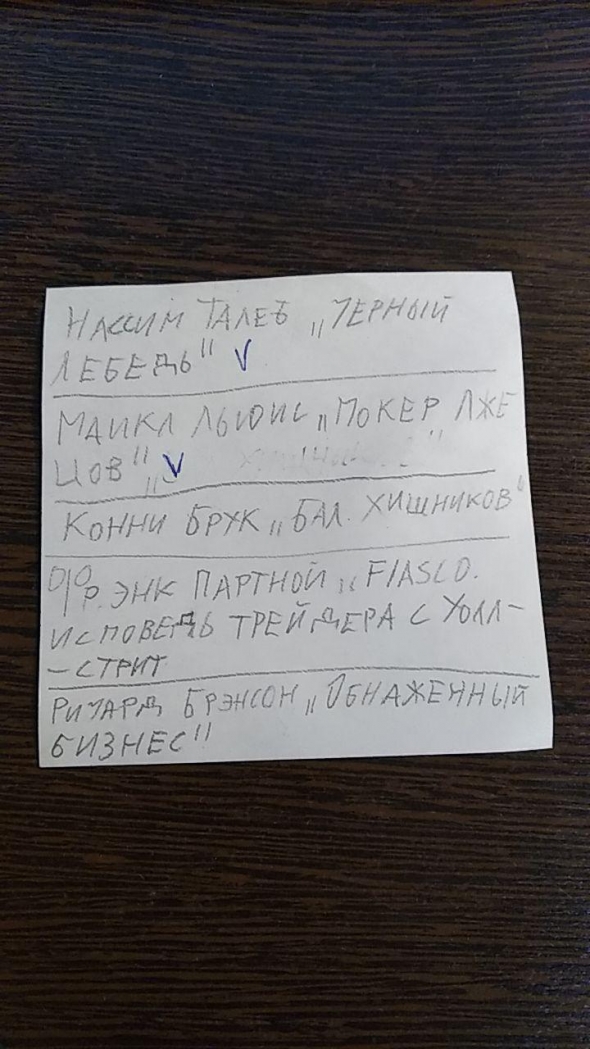 НАССИМ ТАЛЕБ „ЧЕРНЫЙ
ЛЕБЕДЬ" V
МАЙКЛ ЛЬЮИС „ПОКЕР ЛЖЕ
ЦОВ" V
КОННИ БРУК „БАЛ ХИЩНИКОВ"
ФР.ЭНК ПАРТНОЙ „FIASCO.
ИСПОВЕДЬ ТРЕЙДЕРА С УОЛЛ-
-СТРИТ
РИЧАРД БРЭНСОН „ОБНАЖЕННЫЙ
БИЗНЕС"